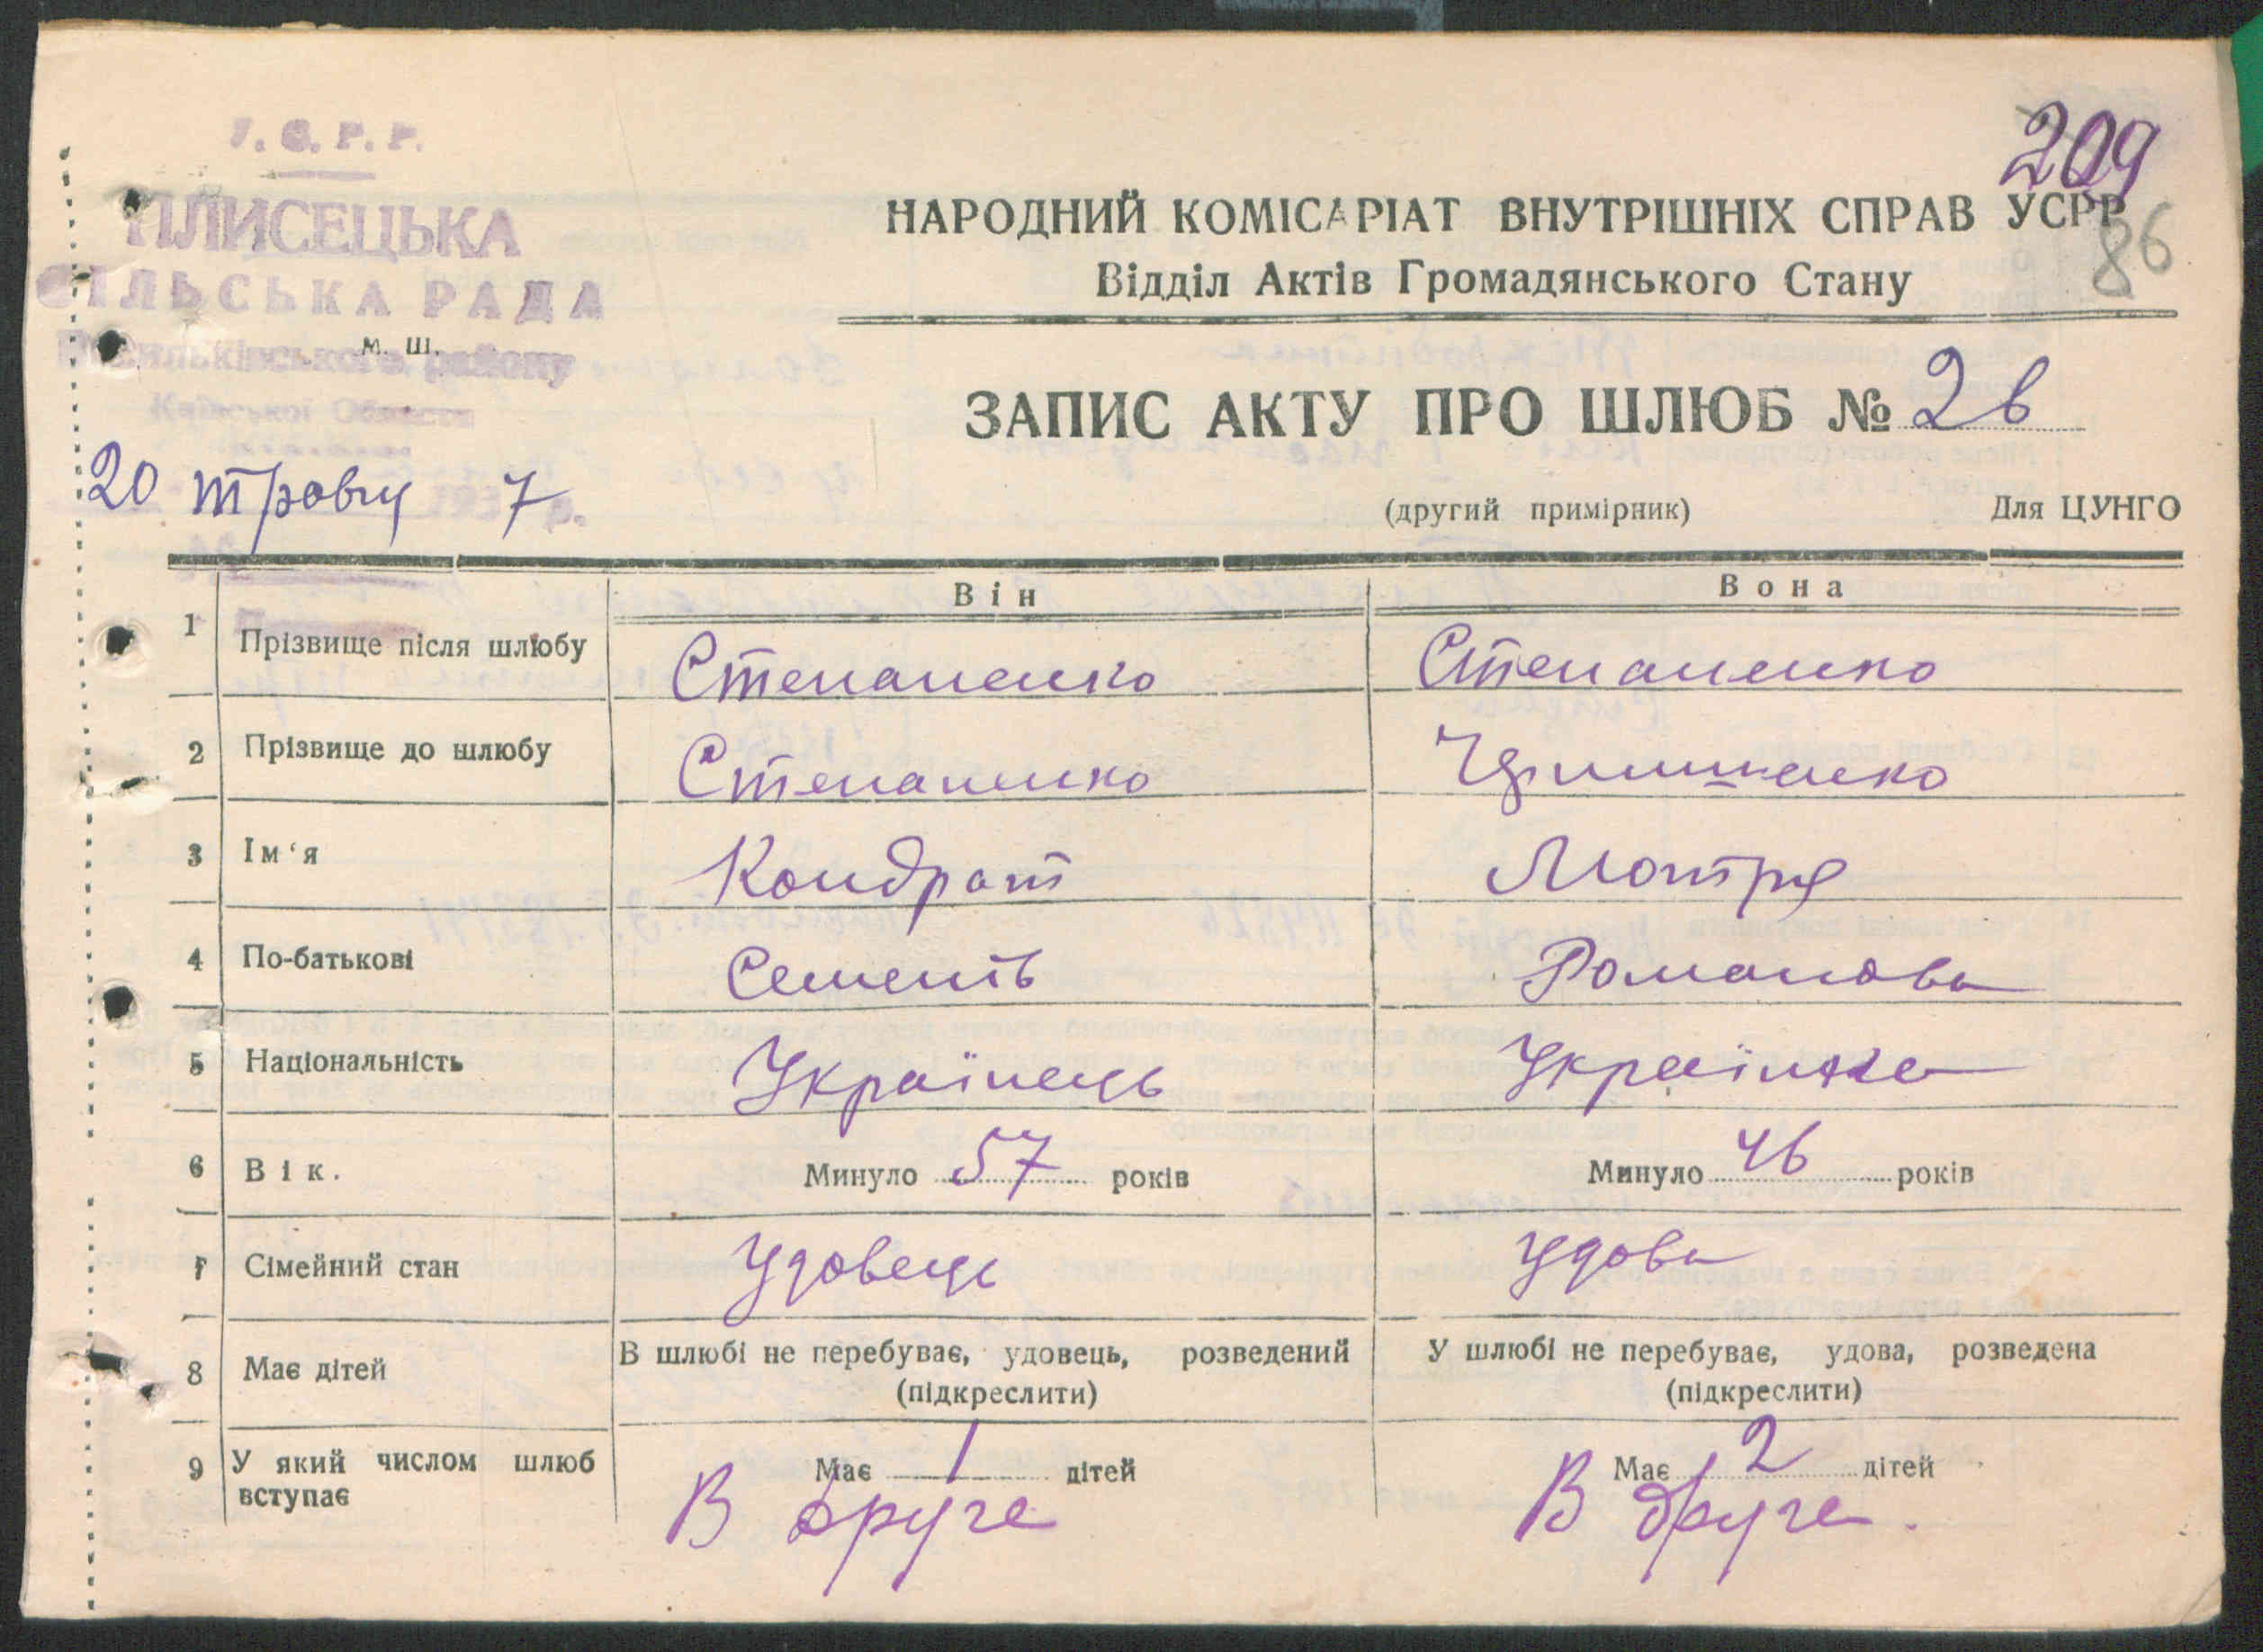 У.С.Р.Р.
ПЛИСЕЦЬКА
СІЛЬСЬКА РАДА
м. ш.
Васильківського району
Київської Области
20 травня 7 р.
209
86
НАРОДНИЙ КОМІСАРІАТ ВНУТРІШНІХ СПРАВ УСРР
Відділ Актів Громадянського Стану
ЗАПИС АКТУ ПРО ШЛЮБ № 26
(другий примірник) Для ЦУНГО
Він Вона
1 Прізвище після шлюбу Степаненко Степаненко
2 Прізвище до шлюбу Степаненко
3 Ім‘я Кондрат Мотря
4 По-батькові Семенів Романова
5 Національність Українець Українка
6 Вік. Минуло 57 років Минуло 46 років
7 Сімейний стан Удовець Удова
8 Має дітей В шлюбі не перебуває, удовець, розведений (підкреслити) У шлюбі не перебуває, удова, розведена (підкреслити)
9 У який числом шлюб вступає Має 1 дітей Має 2 дітей
В друге В друге.